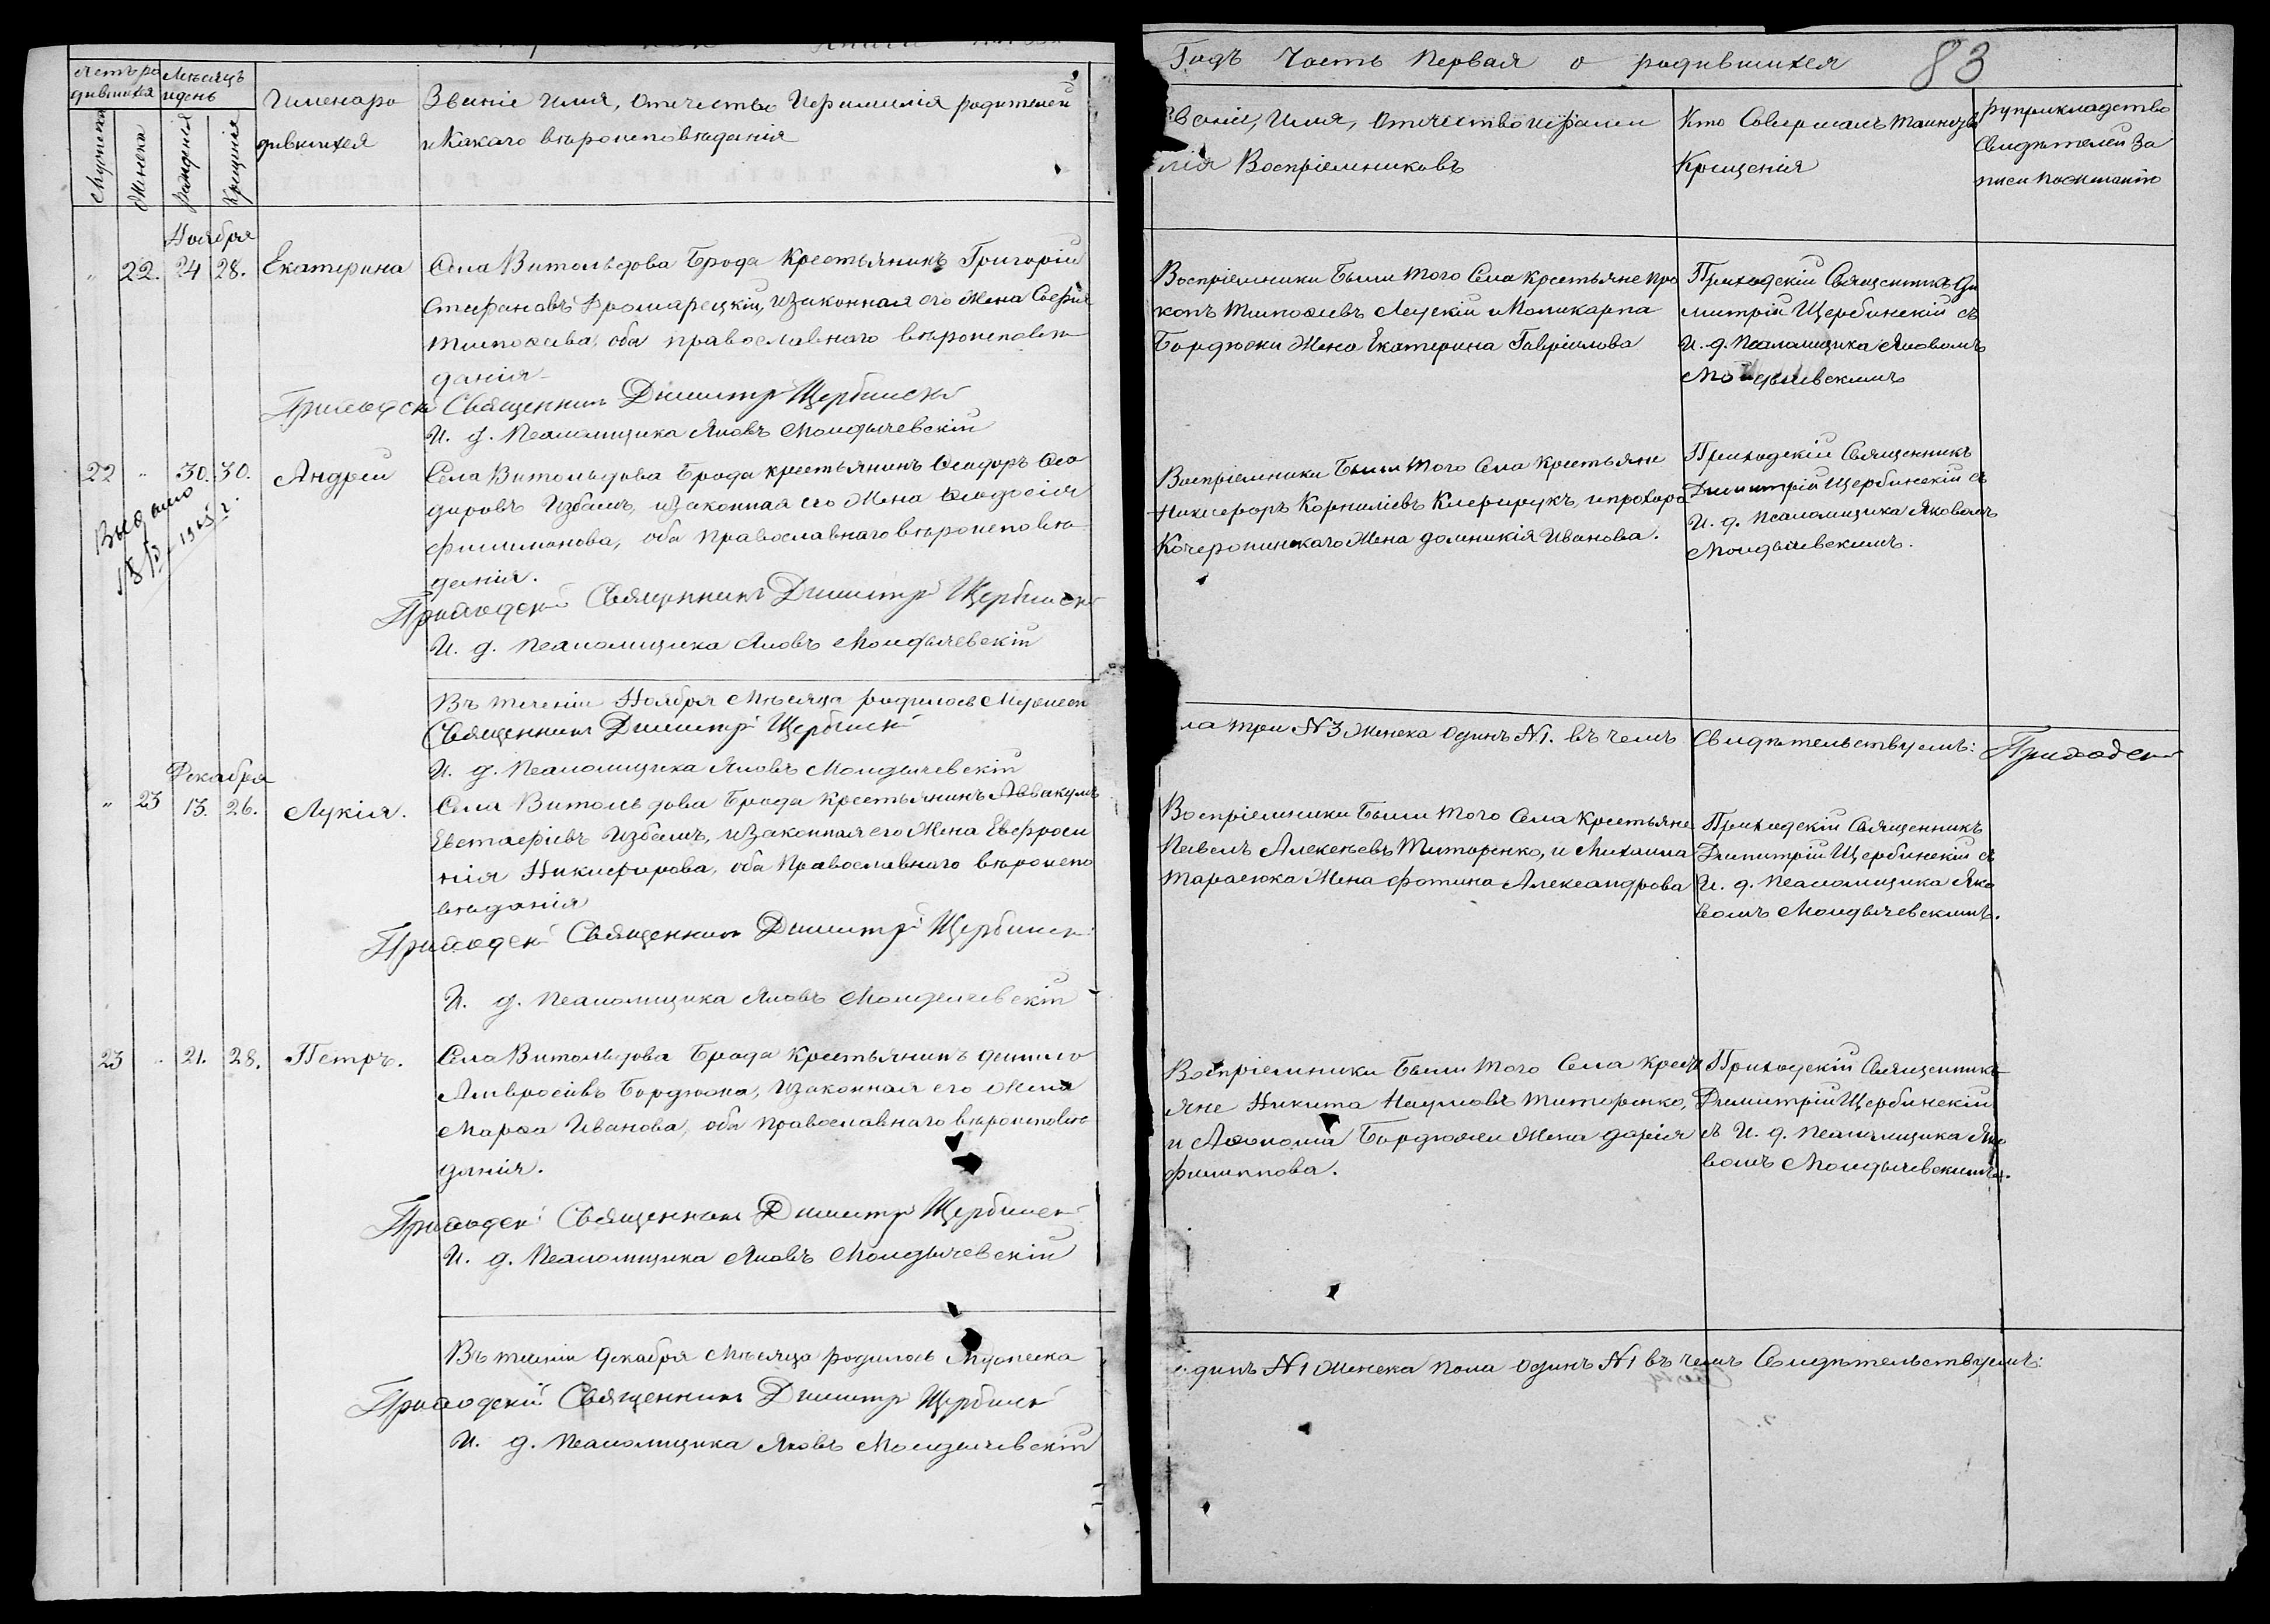 Счетъ ро
дившихся
Мѣсяцъ
и день
Мужеска
Женска
рожденія
Крещенія
Имена ро
дившихся
Званіе Имя, Отчество И фамилія родителей
и Какого вѣроисповѣданія
Ноября
" 22. 24 28. Екатерина
Села Витольдова Брода Крестьянинъ Григорій
Стефановъ Дромарецкій, И законная его Жена Софія
Тимофеева, оба православнаго вѣроисповѣ
данія
Приходскій Священникъ Димитрій Щербинскій
И. д. Псаломщика Яковъ Молдычевскій
22 " 30. 30. Андрей
Выдано
Села Витольдова Брода крестьянинъ Ѳеодоръ Ѳео
доровъ Избашъ, и Законная его Жена Ѳеодосія
филимонова, оба Православнаго вѣроисповѣ
данія.
Приходскій Священникъ Димитрій Щербинскій
И. д. Псаломщика Яковъ Молдычевскій
Въ теченіи Ноября Мѣсяца родилось Мужеск
Священникъ Димитрій Щербинскій
И. д. Псаломщика Яковъ Молдычевскій
Декабря
" 23 13. 26. Лукія.
Села Витольдова Брода Крестьянинъ Аввакумъ
Евстафіевъ Избашъ, и Законная его Жена Евфроси
нія Никифорова, оба Православнаго вѣроиспо
вѣданія
Приходскій Священникъ Димитрій Щербинскій
И. д. Псаломщика Яковъ Молдычевскій
23 " 21. 28. Петръ.
Села Витольдова Брода Крестьянинъ данило
Амвросіевъ Бордюжа, И законная его Жена
Марѳа Иванова, оба православнаго вѣроисповѣ
данія.
Приходскій Священникъ Димитрій Щербинскій
И. д. Псаломщика Яковъ Молдычевскій
Въ теченіи декабря Мѣсяца родилось Мужеска
Приходскій Священникъ Димитрій Щербинскій
И. д. Псаломщика Яковъ Молдычевскій
Годъ Часть Первая о родившихся 83
Званіе, Имя, Отчество и фами
лія Воспріемниковъ
Кто Совершалъ таинство
Крещенія
рукприкладство
Свидѣтелей За
писи по желанію
Воспріемники Были того Села крестьяне Про
копъ Тимофеевъ и Поликарпа
Бордюжи Жена Екатерина Гавріилова
Приходскій Священникъ Ди
митрій Щербинскій съ
И. д. Псаломщика Яковомъ
Молдычевскимъ
Воспріемники Были того Села Крестьяне
Никифоръ Корниліевъ, и Прохора
Кочеропинскаго Жена домникія Иванова.
Приходскій Священникъ
Димитрій Щербинскій съ
И. д. Псаломщика Яковомъ
Молдычевскимъ.
ла три №3 Женска Одинъ №1. въ чемъ Свидѣтельствуемъ: Приходскій
Воспріемники Были того Села Крестьяне
Павелъ Алексѣевъ Титаренко, и Михаила
Тарасюка Жена фотина Александрова
Приходскій Священникъ
Димитрій Щербинскій съ
И. д. Псаломщика Яко
вомъ Молдычевскимъ.
Воспріемники Были того Села Крестъ
яне Никита Наумовъ Титаренко,
и Бордюжи Жена дарія
филиппова.
Приходскій Священникъ
Димитрій Щербинскій
съ И. д. Псаломщика Яко
вомъ Молдычевскимъ.
одинъ №1 Женска пола Одинъ №1 въ чемъ Свидѣтельствуемъ: